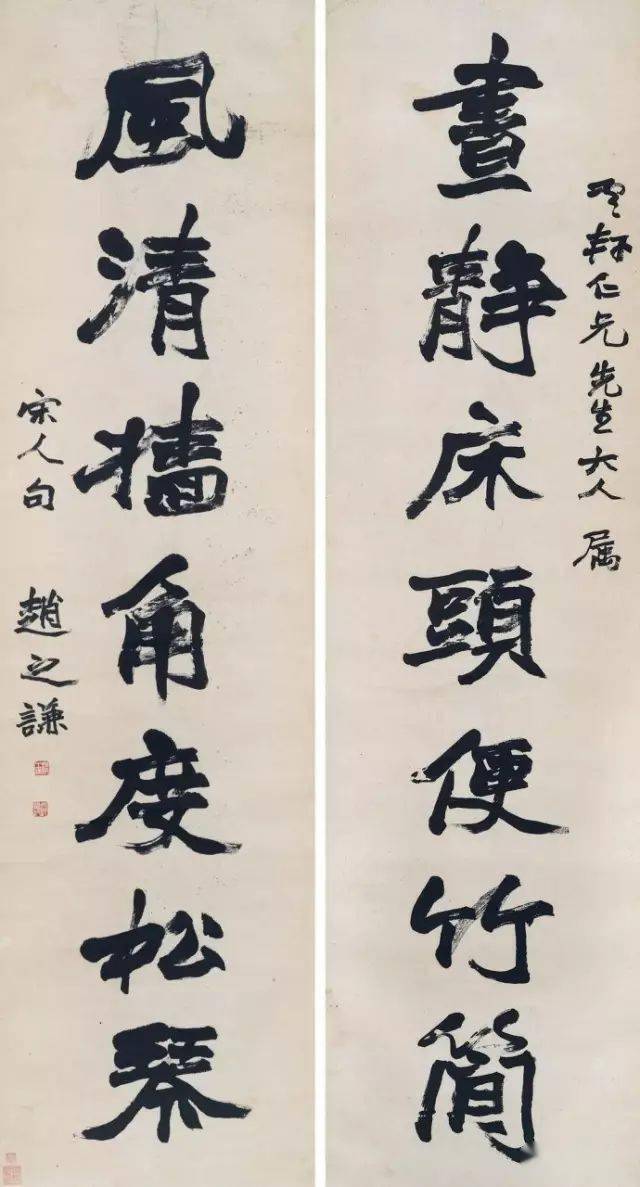 軒仁兄先生大人属
晝靜床頭便竹簡
風清牆角度松琴
宋人句 趙之謙